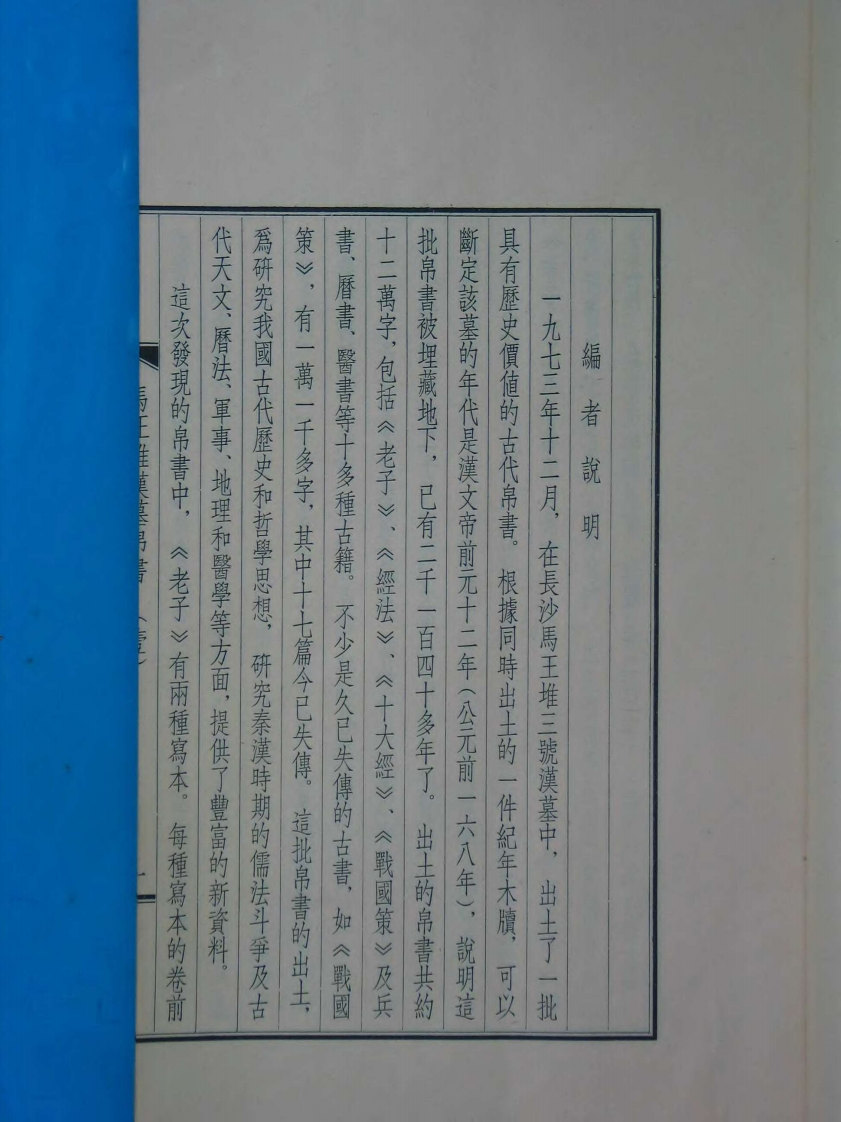 編者說明
一九七三年十二月，在長沙馬王堆三號漢墓中，出土了一批
具有歷史價值的古代帛書。根據同時出土的一件紀年木牘，可以
斷定該墓的年代是漢文帝前元十二年（公元前一六八年），說明這
批帛書被埋藏地下，已有二千一百四十多年了。出土的帛書共約
十二萬字，包括《老子》、《經法》、《十大經》、《戰國策》及兵
書、曆書、醫書等十多種古籍。不少是久已失傳的古書，如《戰國
策》，有一萬一千多字，其中十七篇今已失傳。這批帛書的出土，
爲研究我國古代歷史和哲學思想，研究秦漢時期的儒法斗爭及古
代天文、曆法、軍事、地理和醫學等方面，提供了豐富的新資料。
這次發現的帛書中，《老子》有兩種寫本。每種寫本的卷前
馬王堆漢墓帛書（壹）
一